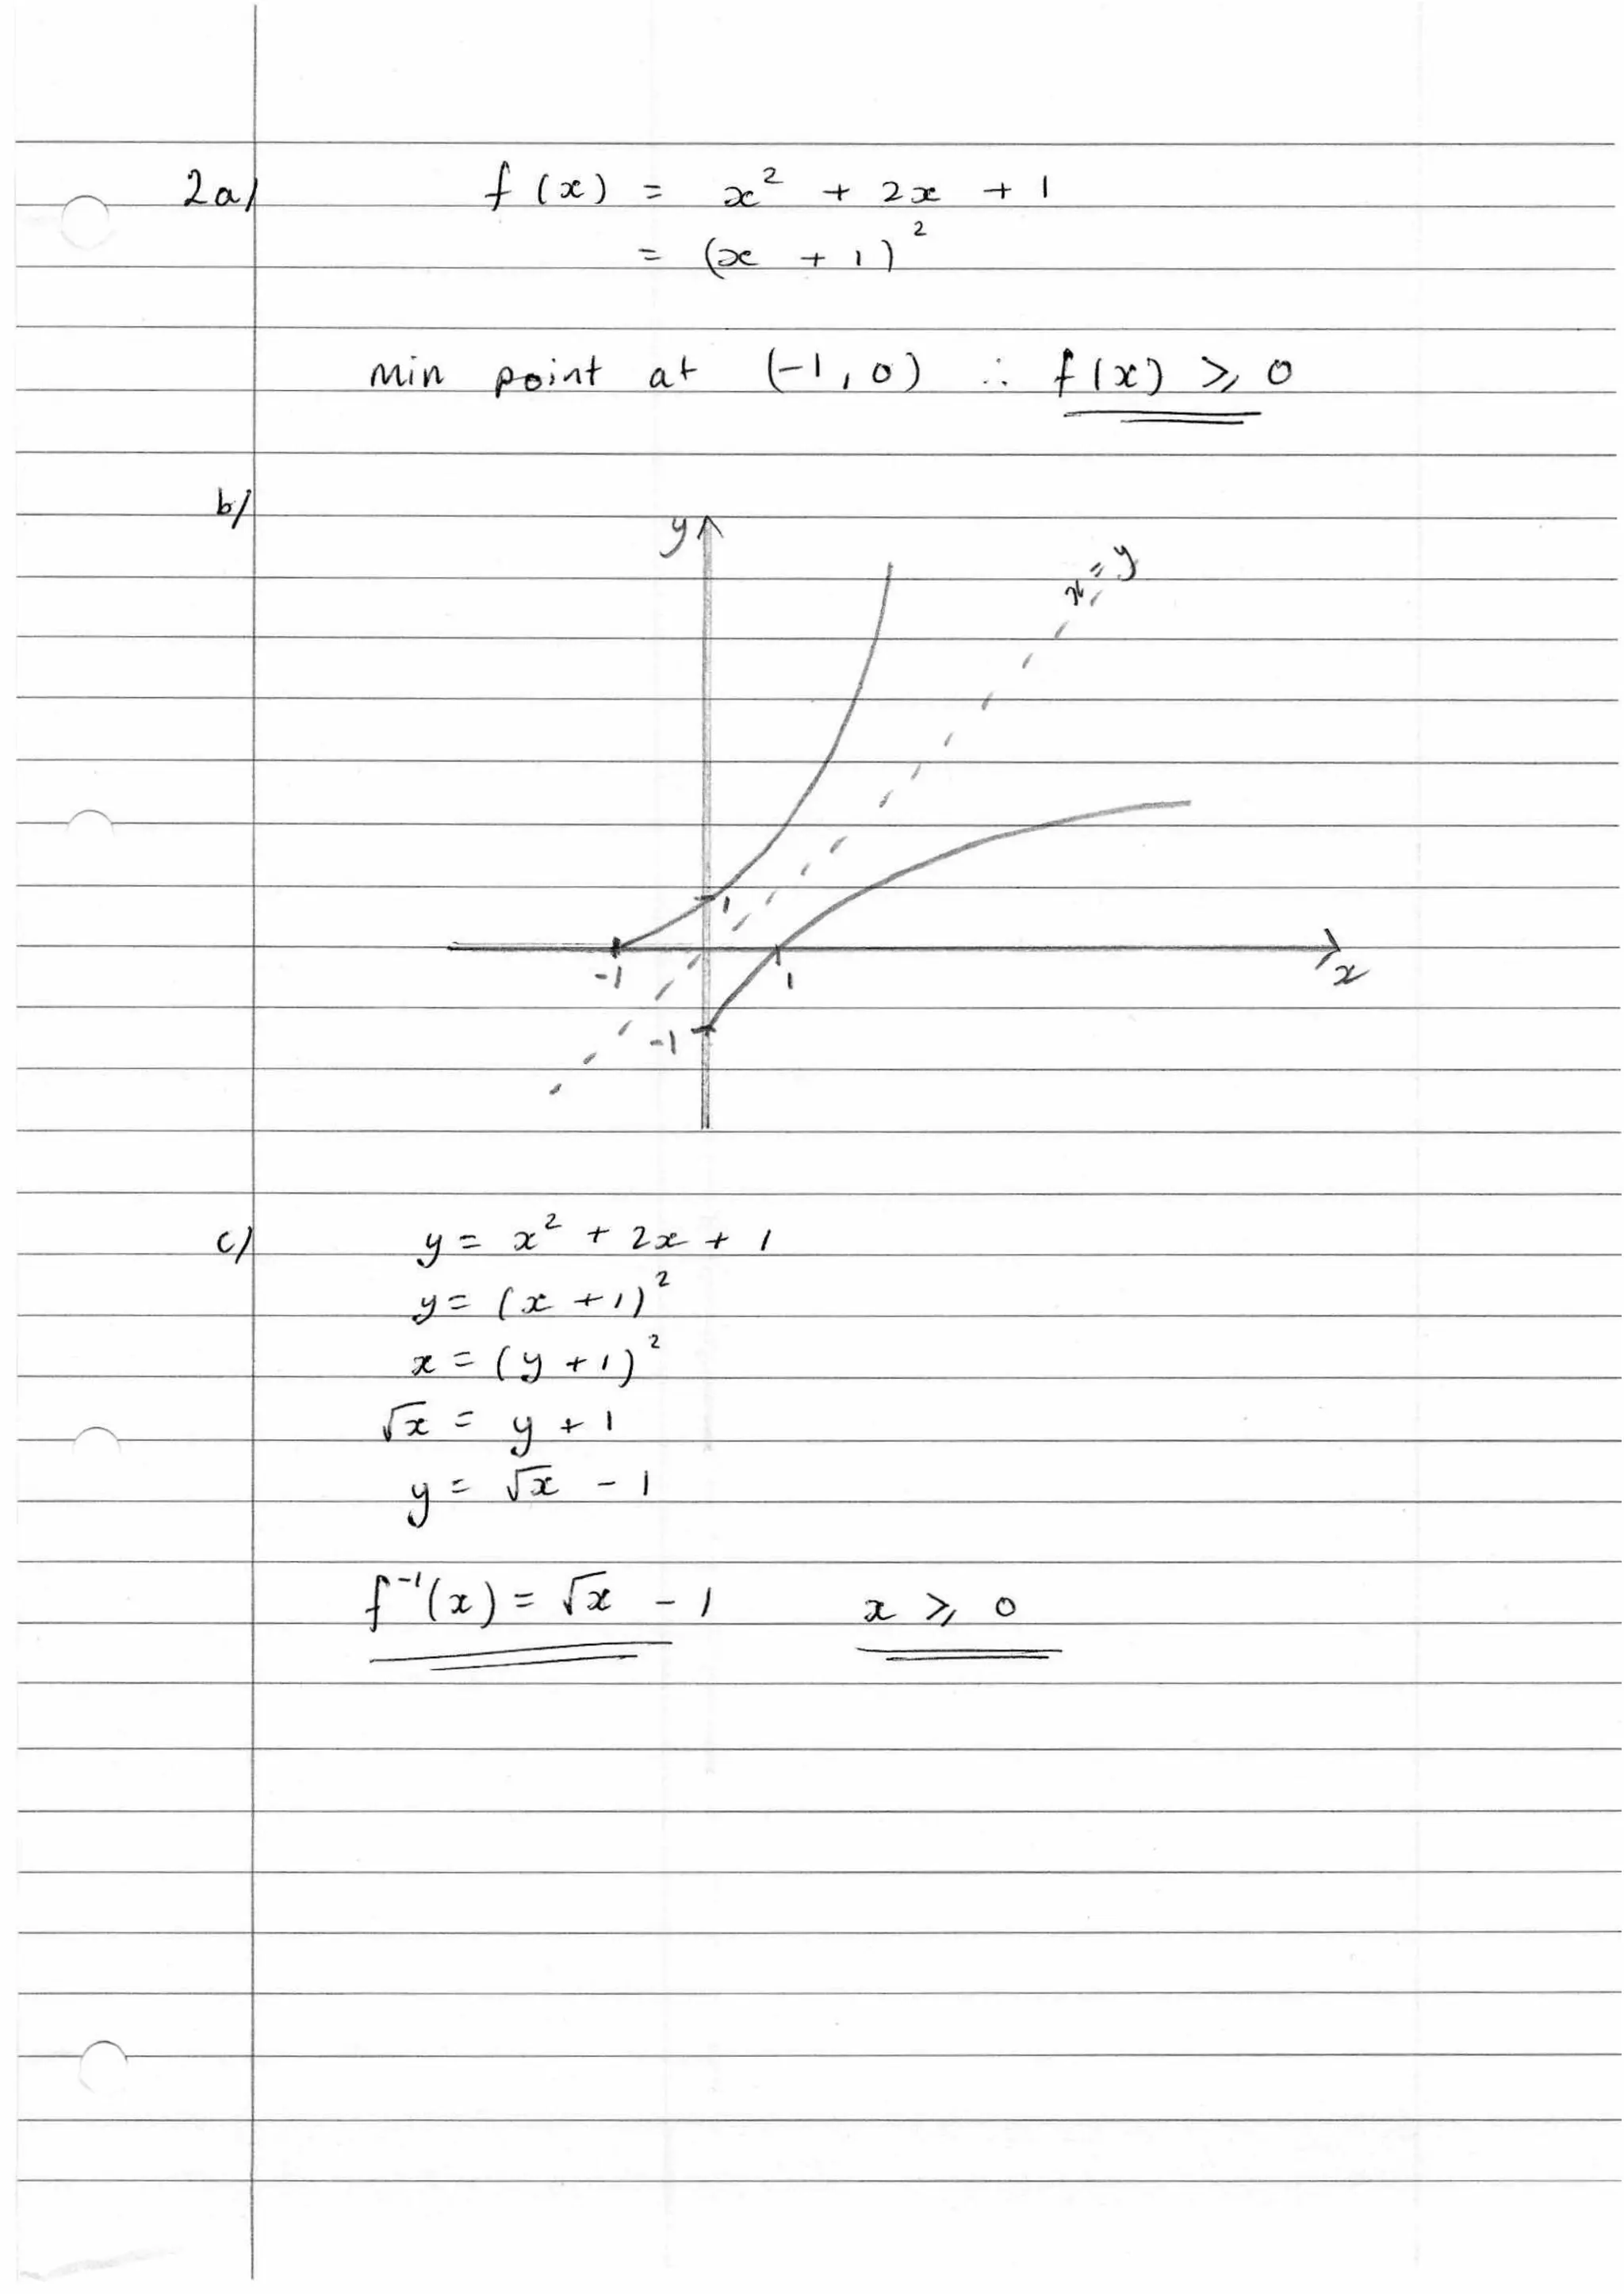 2a/ f(x) = x² + 2x + 1
= (x + 1)²
min point at (-1, 0) ∴ f(x) ⩾ 0
b/
y
x = y
1
-1 1 x
-1
c/ y = x² + 2x + 1
y = (x + 1)²
x = (y + 1)²
√x = y + 1
y = √x - 1
f⁻¹(x) = √x - 1 x ⩾ 0